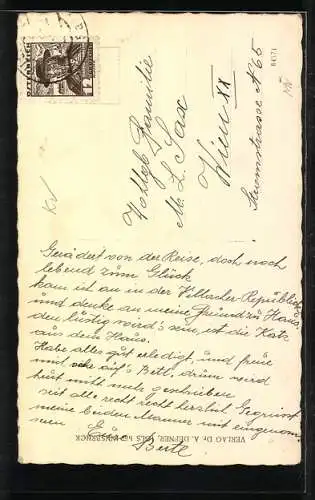 Wohlgeb Familie
M. L. Sax
Wien XX
Stromstrasse No 65
Gerädert von der Reise, doch noch
lebend zum Glück
kam ich an in der Republick
und denke an meine Freind zu Haus,
den lustig wird's sein, ist die Katz
aus dem Haus.
Habe alles gut erledigt, und freue
mich sehr auf's Bettl, drum wird
heut nicht mehr geschrieben
seit alle recht recht herzlich Gegrüsst
meine beiden Manner mit eingenom
men Eure
Bertl
VERLAG Dr. A. DEFNER, IGLS bei INNSBRUCK